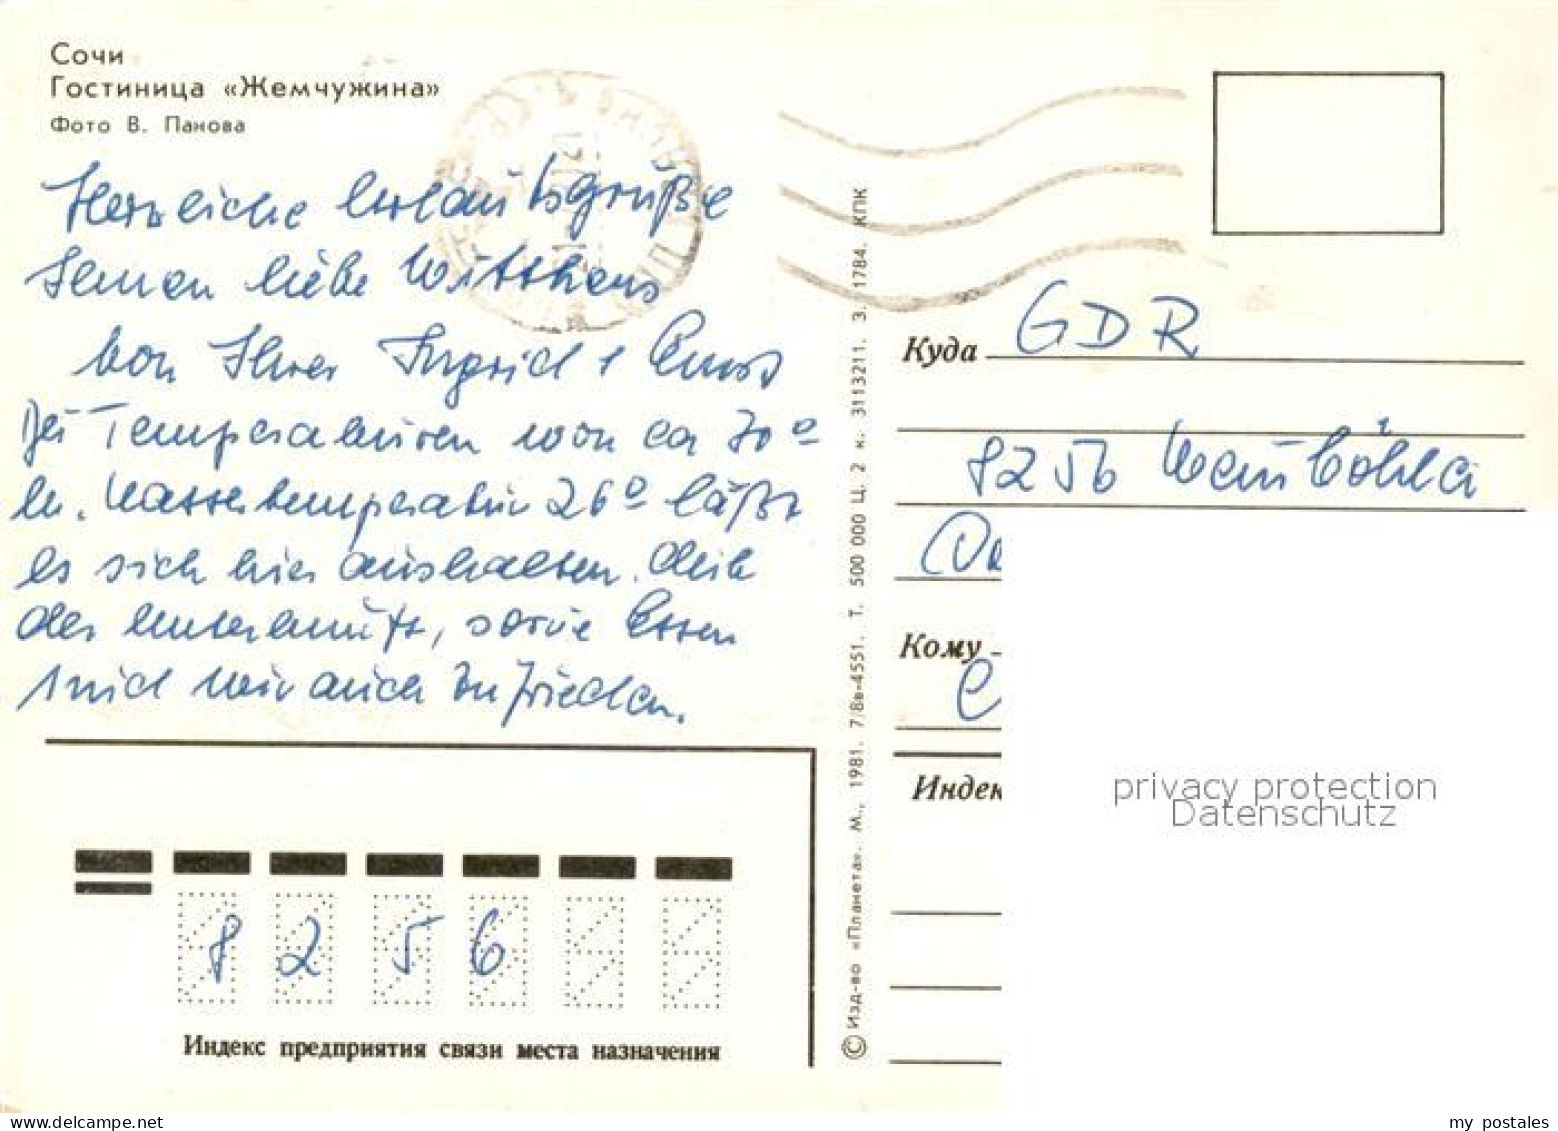 Сочи
Гостиница «Жемчужина»
Фото В. Панова
Herzliche Urlaubsgrüße
senden liebe
von Ihrer Ingrid + Ernst
Bei Temperaturen von ca 30°
u. Wassertemperatur 26° läßt
es sich hier aushalten. Mit
der Unterkunft, sowie Essen
sind wir auch zufrieden.
Индекс предприятия связи места назначения
8 2 5 6
© Изд-во «Планета». М., 1981. 7/8в-4551. Т. 500 000 Ц. 2 к. 3113211. З. 1784. КПК
Куда GDR
8256 Weinböhla
Кому
Индек
privacy protection
Datenschutz
my postales